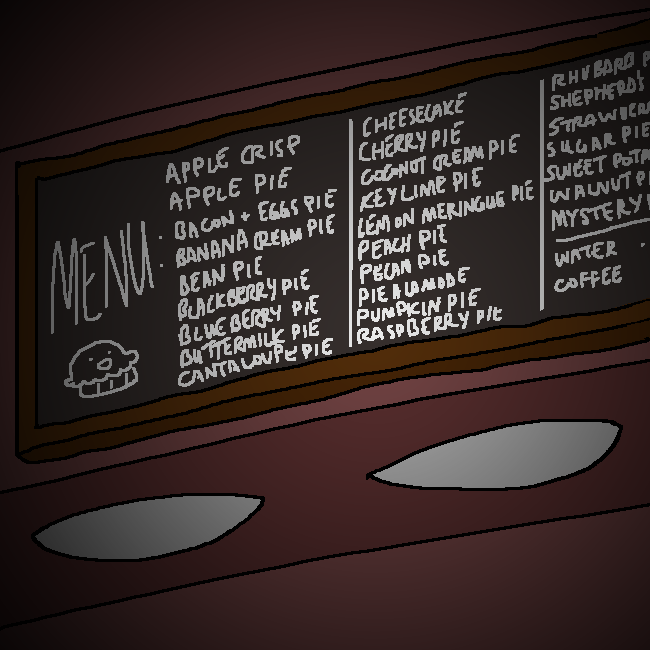 MENU:
APPLE CRISP
APPLE PIE
BACON + EGGS PIE
BANANA CREAM PIE
BEAN PIE
BLACKBERRY PIE
BLUEBERRY PIE
BUTTERMILK PIE
CANTALOUPE PIE
CHEESECAKE
CHERRY PIE
COCONUT CREAM PIE
KEY LIME PIE
LEMON MERINGUE PIE
PEACH PIE
PECAN PIE
PIE ALAMODE
PUMPKIN PIE
RASPBERRY PIE
RHUBARB
SHEPHERD'S
SUGAR PIE
SWEET
WALNUT
MYSTERY
WATER
COFFEE